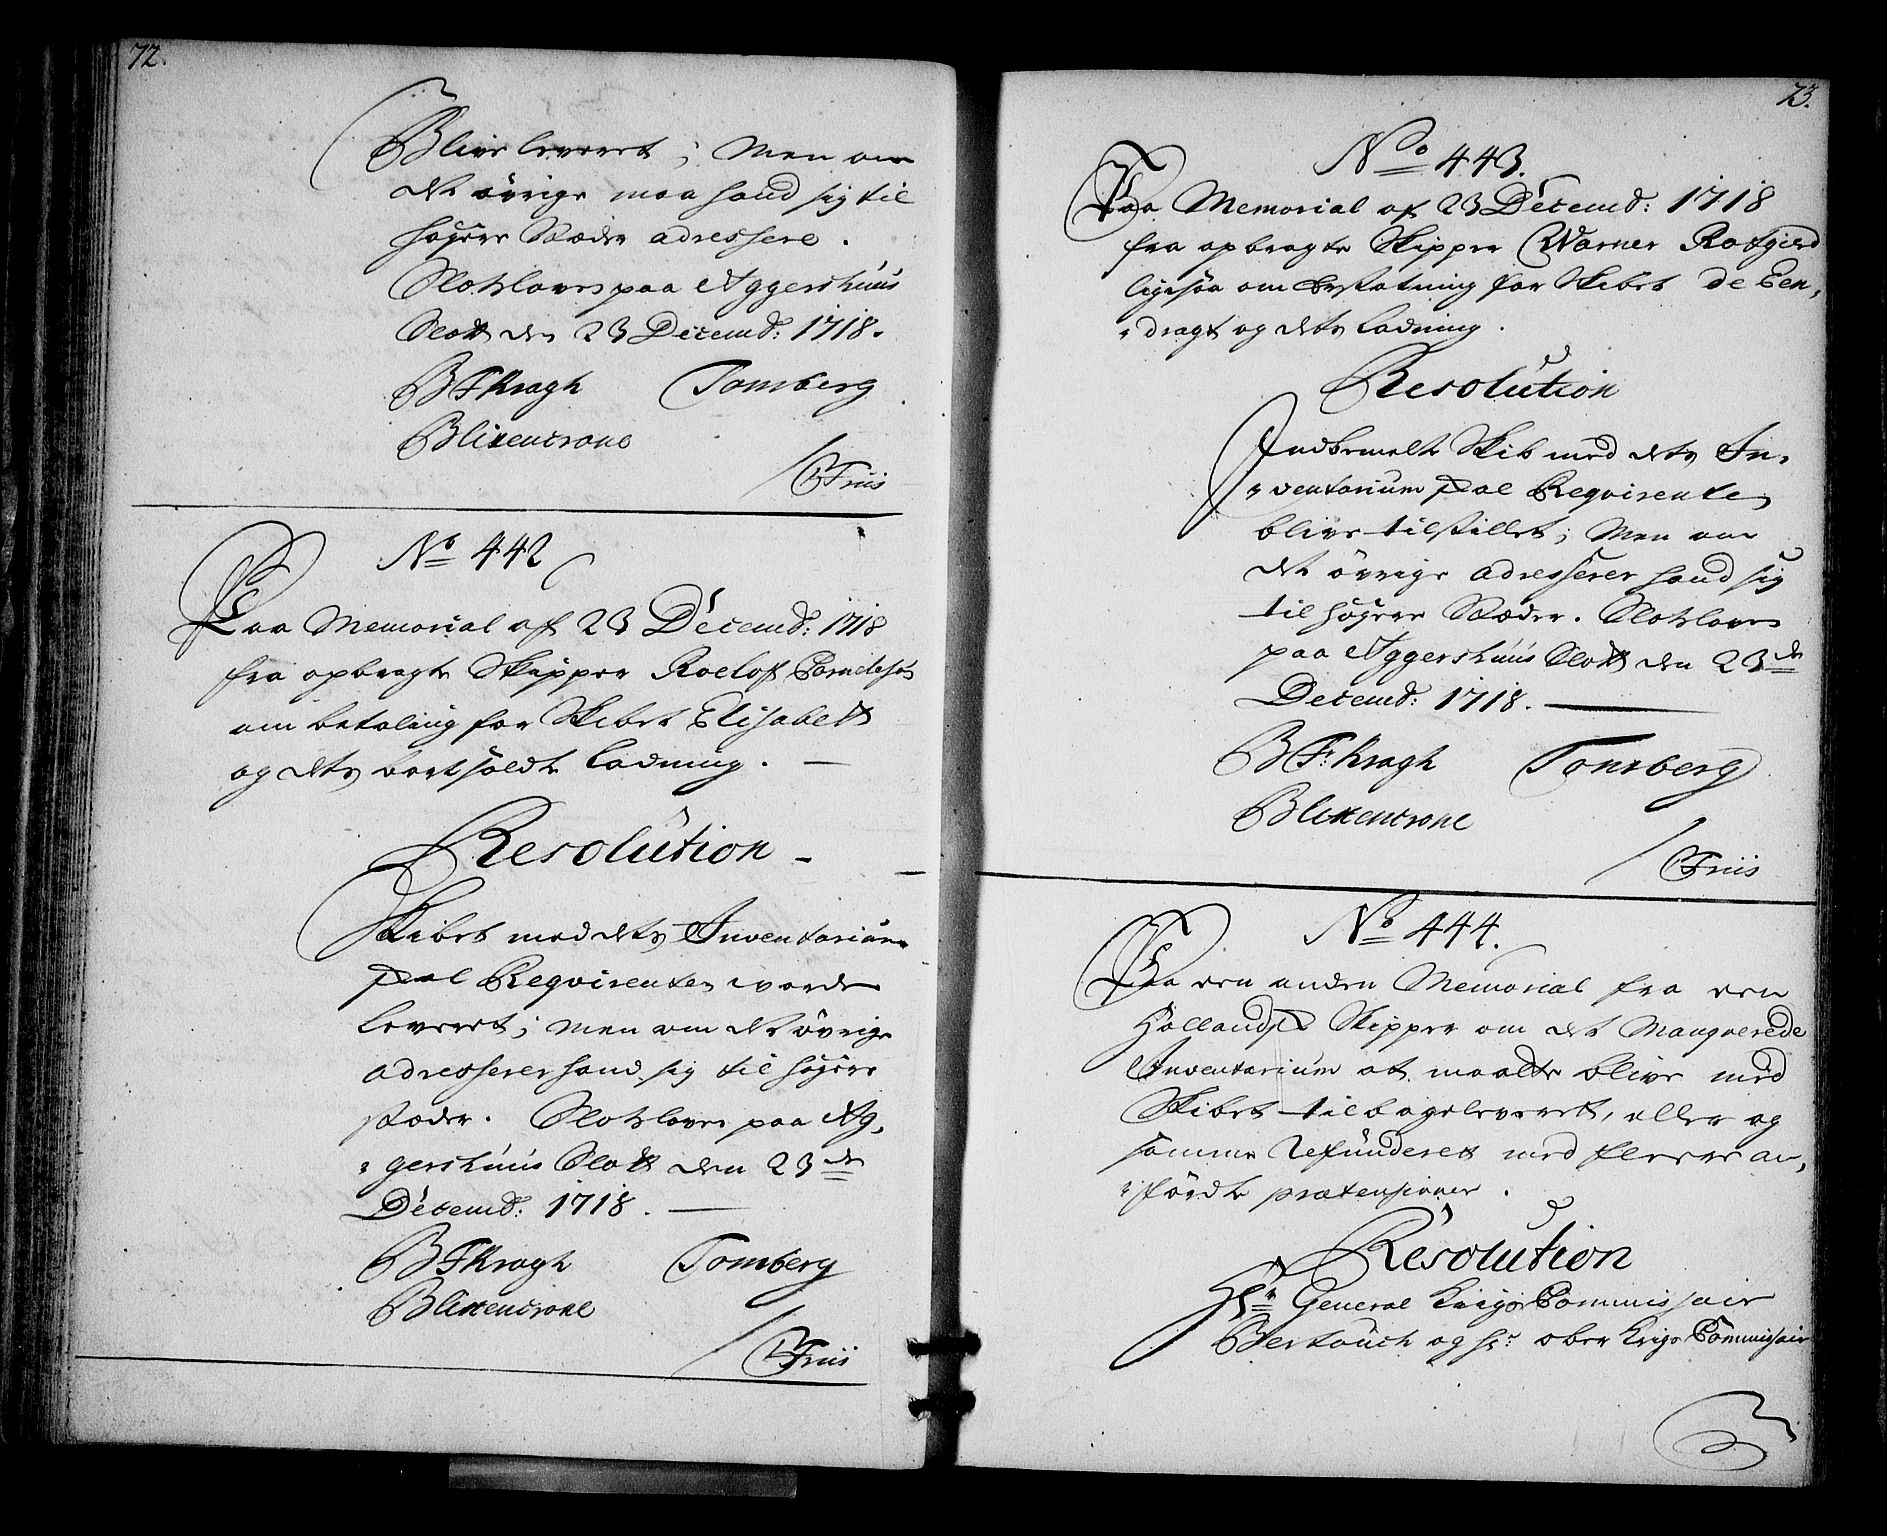 72.
Blive leveret; Men om
det øvrige maa hand sig til
høyere Stæder adressere.
Slotsloven paa Aggershuus
Slott den 23 Decemb: 1718.
BFKragh Tonsberg
Blixencrone
/ CFriis
No 442
Paa Memorial af 23 Decemb: 1718
fra opbragte Skipper Roelof Cornelissen
om betaling for Skibet Elisabett
og dets bortsoldte Ladning. —
Resolution -
Skibet med dets Inventarium
skal Reqvirenten vorde
leveret; men om det øvrige
adresserer hand sig til høyere
stæder. Slotsloven paa Ag,
,gershuus Slott den 23de
Decemb: 1718. —
BFKragh Tonsberg
Blixencrone
/ CFriis
73.
No 443.
Paa Memorial af 23 Decemb: 1718
fra opbragte Skipper Warner
ligesaa om Erstatning for Skibet de Een,
,dragt og dets Ladning.
Resolution
Indbemelte Skib med dets In,
,ventarium skal Reqvirenten
blive tilstillet; Men om
det øvrige adresserer hand sig
til høyere Stæder. Slotsloven
paa Aggershuus Slott den 23de
Decemb: 1718. —
BF: Kragh Tonsberg
Blixencrone
/ CFriis
No 444.
Paa een anden Memorial fra een
Hollandsk Skipper om det Manqverede
Inventarium at maatte blive med
Skibet tilbageleveret, eller og
samme Refunderet med fleere an,
,førdte prætensioner.
Resolution
Hr General Krigs Commissair
Berkouch og Hr: ober Krigs Commissair